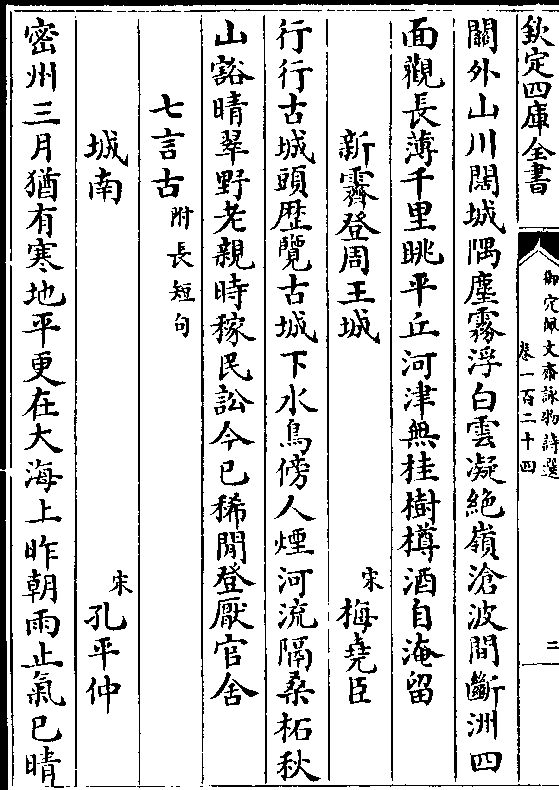 欽定四庫全書
御定佩文齋詠物詩選
卷一百二十四
三
關外山川闊城隅塵霧浮白雲凝絶嶺滄波間斷洲四
面觀長薄千里眺平丘河津無桂樹樽酒自淹留
新霽登周王城
宋梅堯臣
行行古城頭歴覽古城下水鳥傍人煙河流隔桑柘秋
山豁晴翠野老親時稼民訟今已稀閒登厭官舍
七言古附長短句
城南
宋孔平仲
密州三月猶有寒地平更在大海上昨朝雨止氣已晴